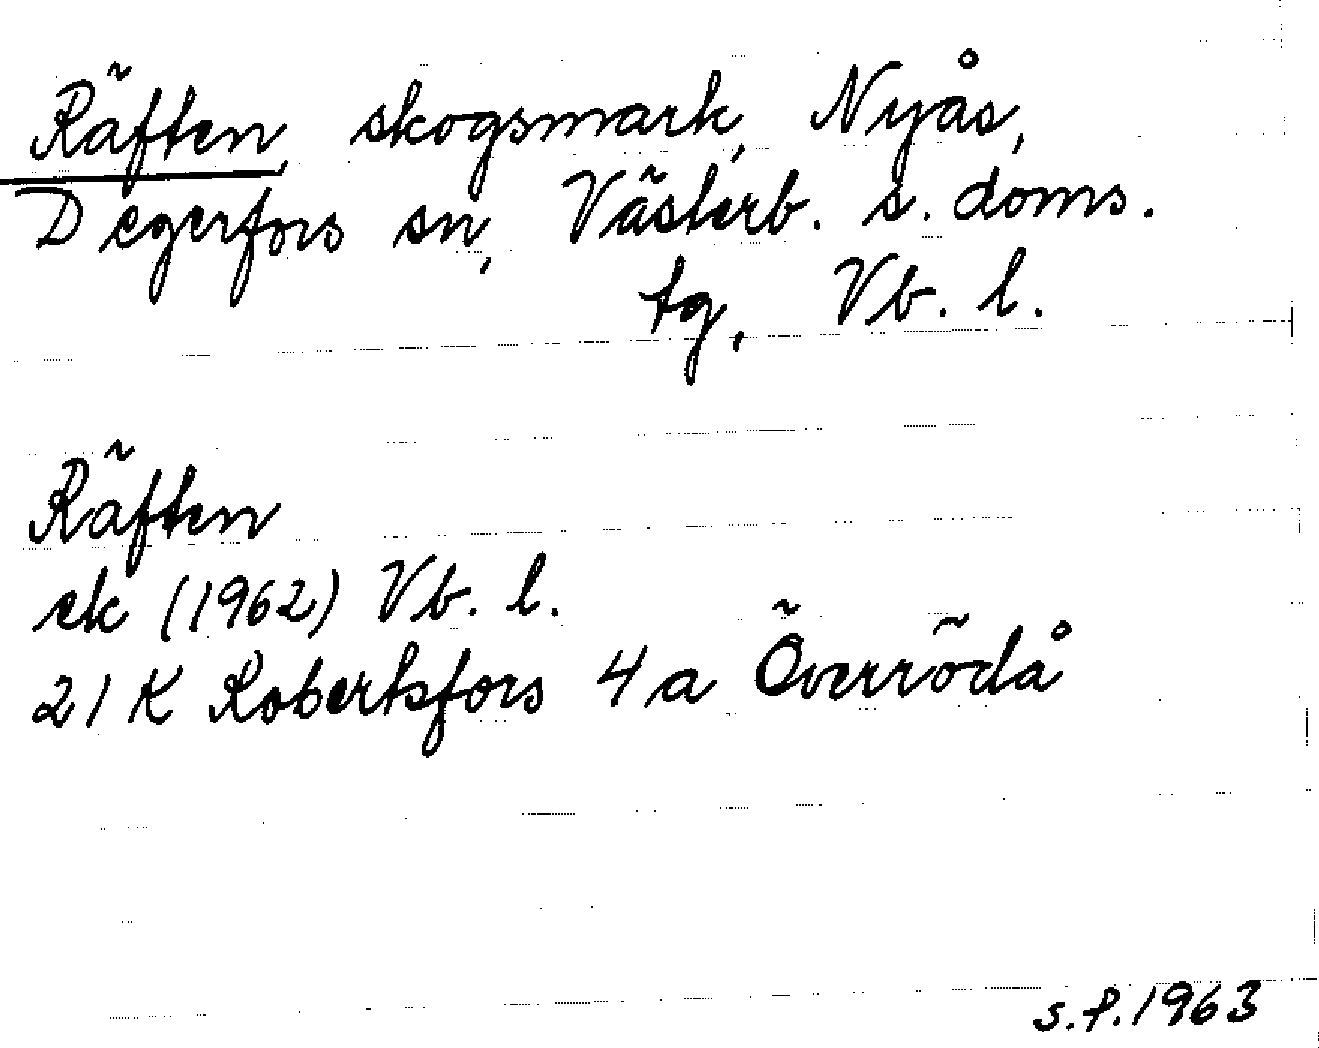 Räften, skogsmark, Nyås,
Degerfors sn, Västerb. s. doms.
tg, Vb. l.
Räften
ek (1962) Vb. l.
21 K Robertsfors 4 a Överrödå
s.f. 1963